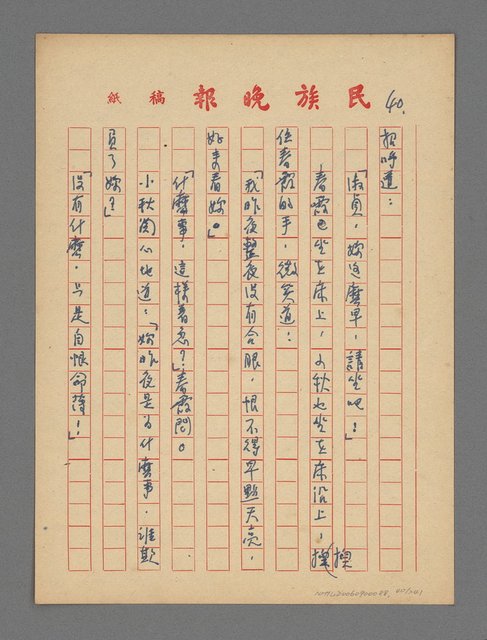 民族晚報 稿紙
40.
招呼道：
「淑貞，妳這麼早，請坐吧！」
春霞也坐在床上，小秋也坐在床沿上，握
住春霞的手，微笑道：
「我昨夜整夜沒有合眼，恨不得早點天亮，
好來看妳。」
「什麼事，這樣着急？」春霞問。
小秋關心地道：「妳昨夜是為什麼事，誰欺
負了妳？」
「沒有什麼，只是自恨命薄！」
40/241